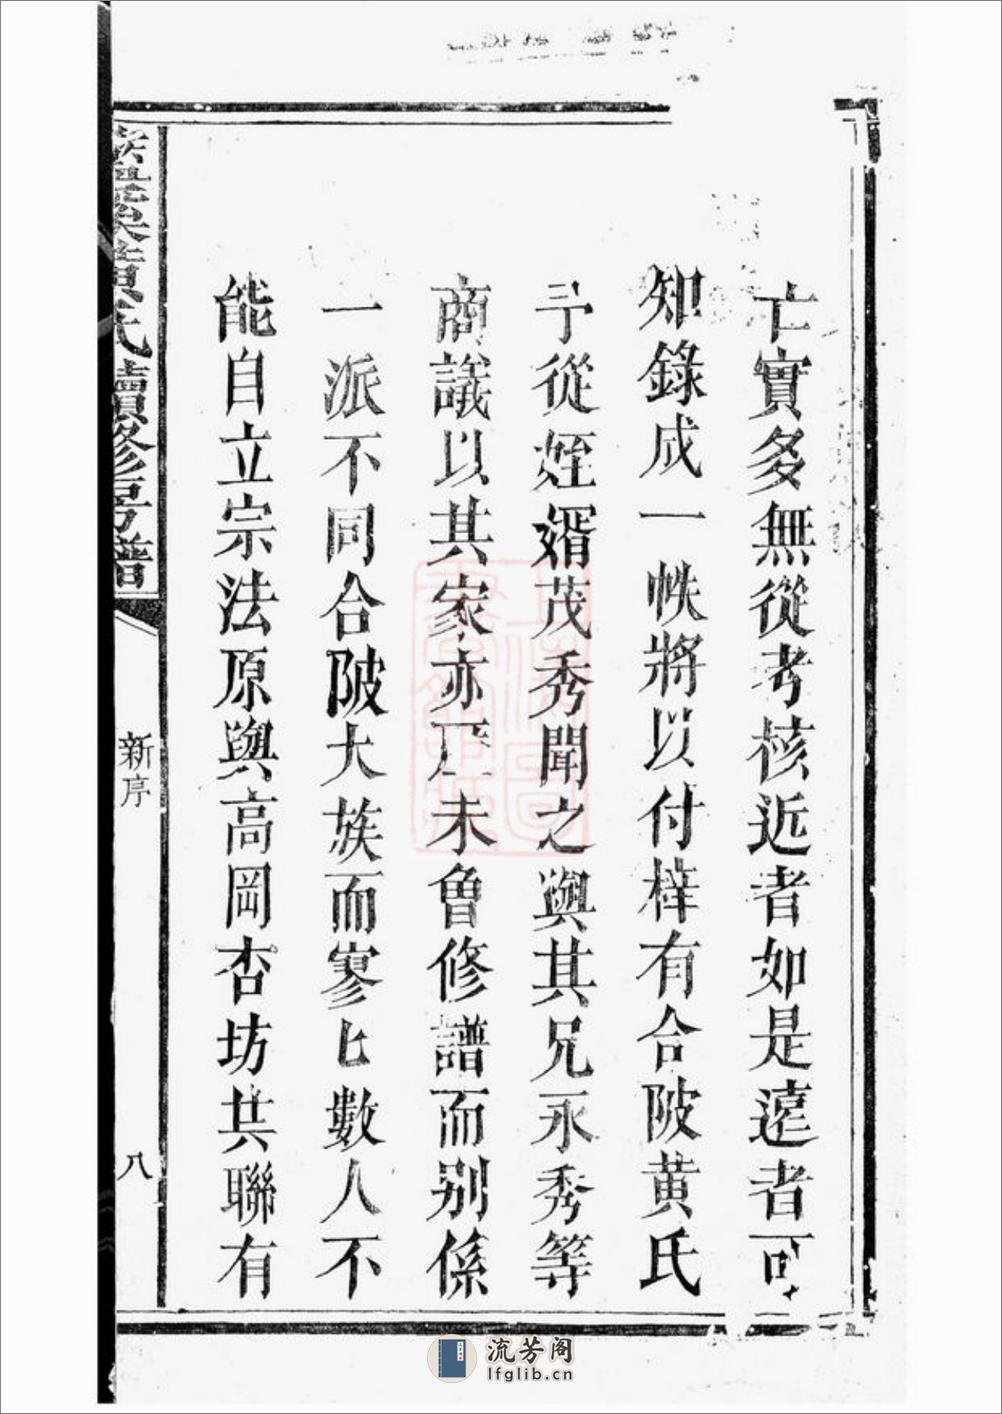 亡實多無從考核近者如是遠者可
知錄成一帙將以付梓有合陂黄氏
予從姪壻茂秀聞之與其兄永秀等
商議以其家亦歷未曾修譜而别係
一派不同合陂大族而寥匕數人不
能自立宗法原與高岡杏坊共聯有
黄氏續修房譜
新序
八
流芳阁
lfglib.cn